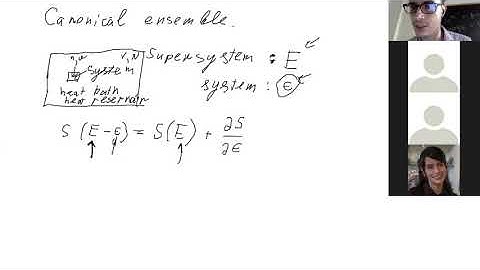 Canonical ensemble.
n,v V,N
system
heat bath
heat reservoir
Supersystem : E
system : ϵ
S (E-ϵ) = S(E) + ∂S
∂ϵ